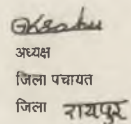 अध्यक्ष
जिला पचायत
जिला रायपुर